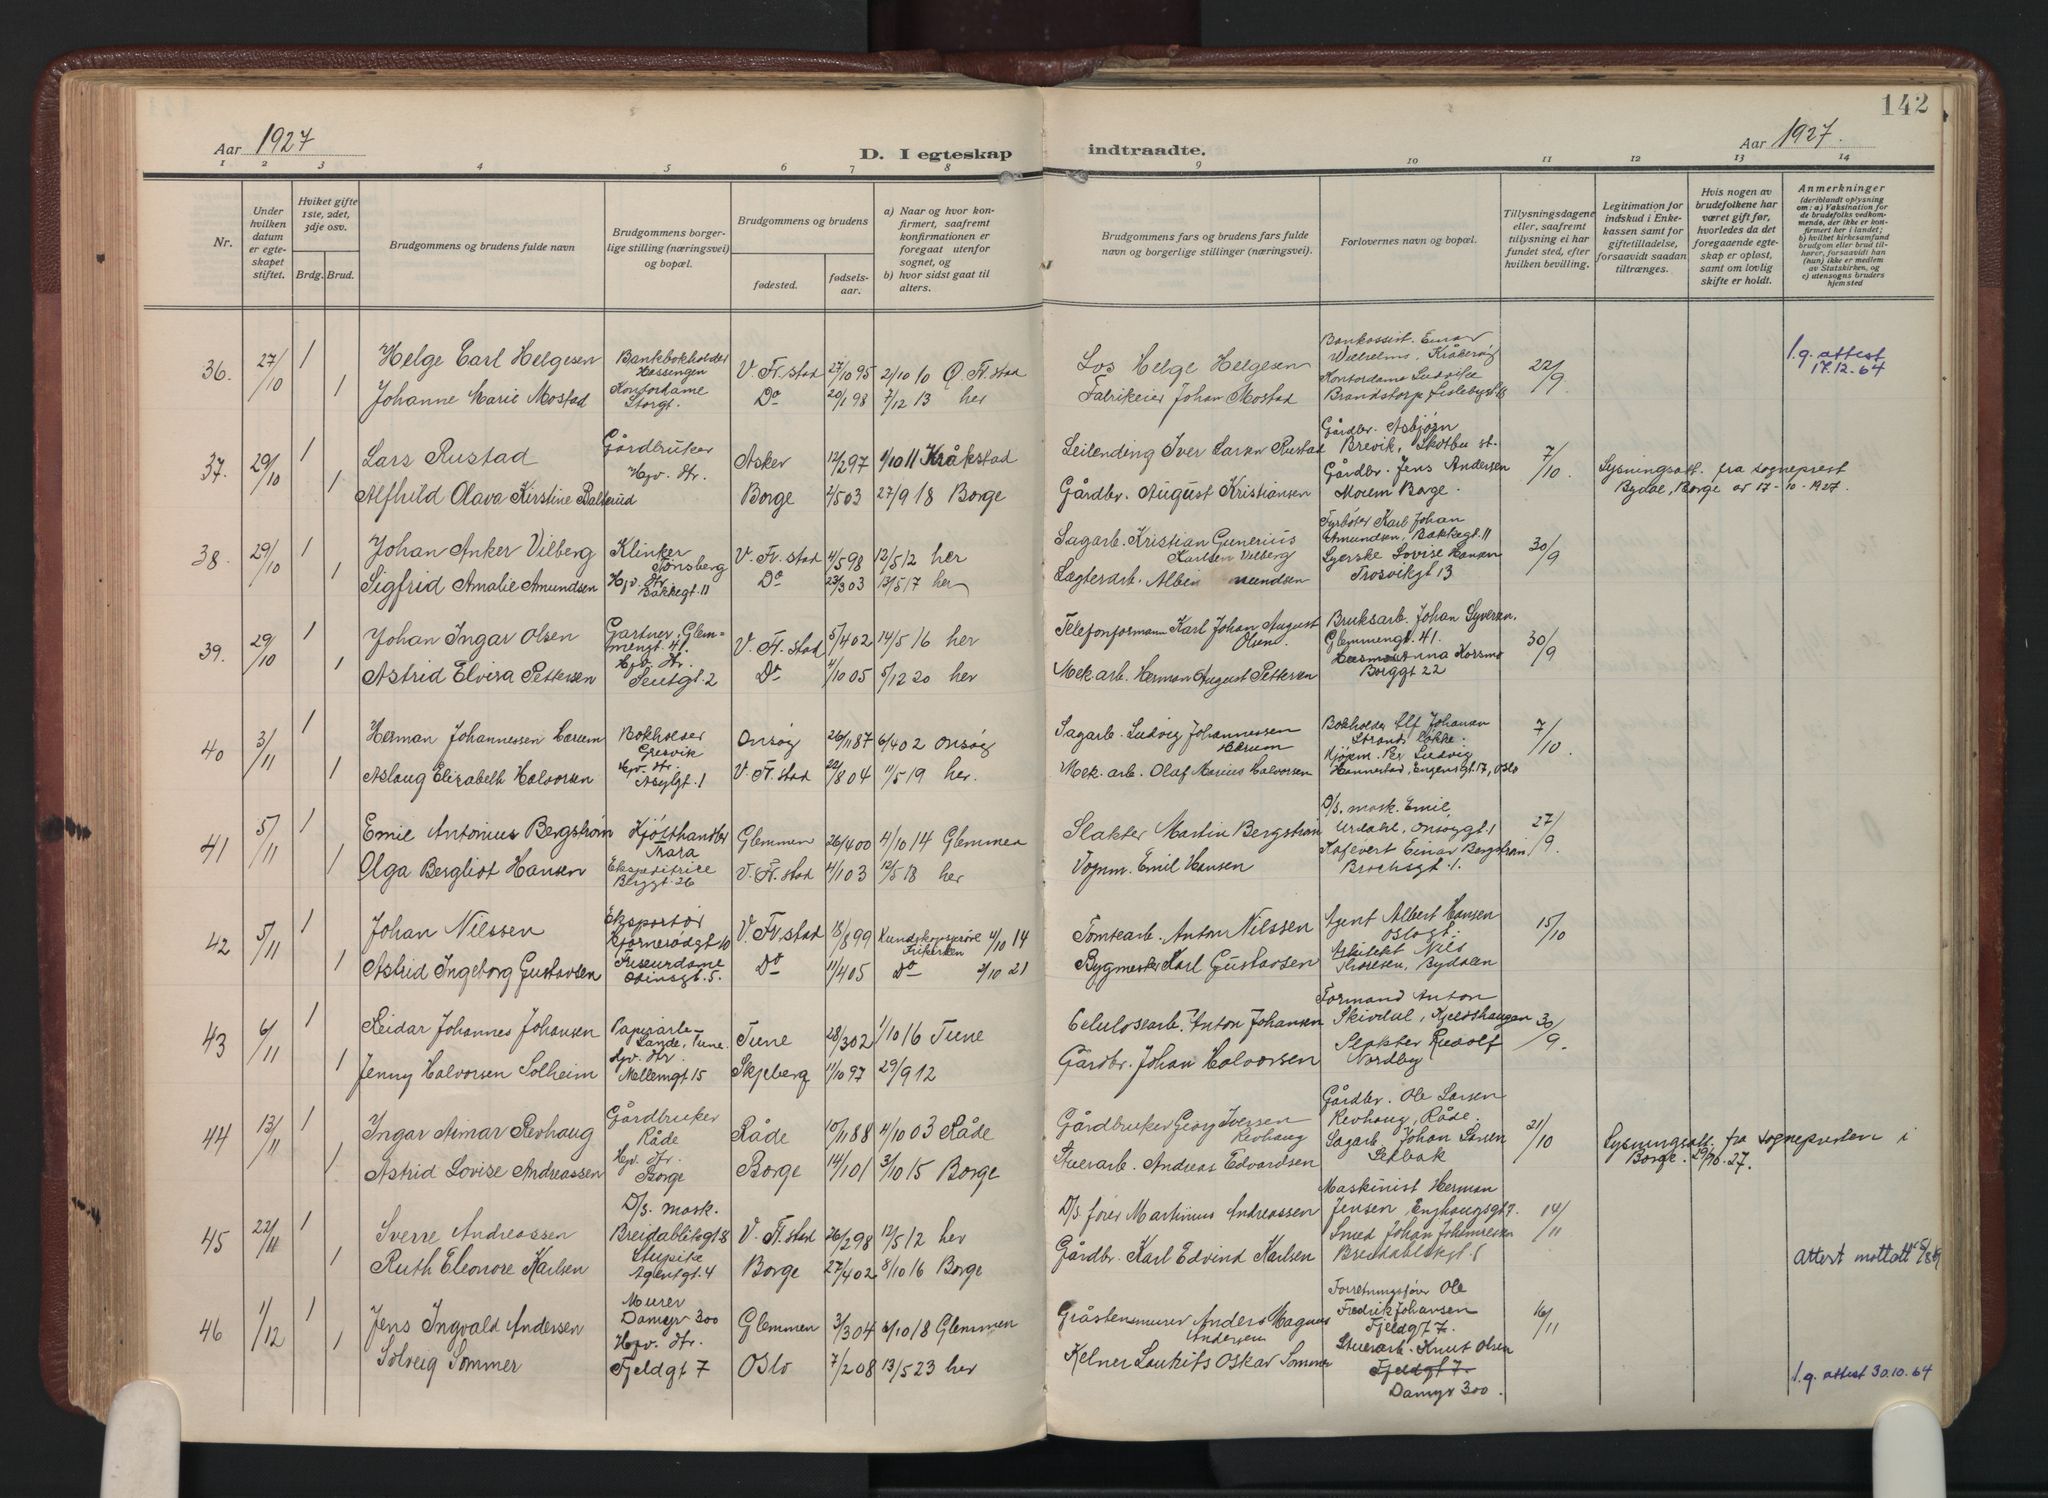 142
Aar 1927
D. I egteskap
indtraadte.
Aar 1927.
1 2 3 4 5 6 7 8 9 10 11 12 13 14
Nr.
Under hvilken datum er egteskapet stiftet.
Hviket gifte 1ste, 2det, 3dje osv.
Brdg. Brud.
Brudgommens og brudens fulde navn
Brudgommens borgerlige stilling (næringsvei) og bopæl.
Brudgommens og brudens
fødested.
fødselsaar.
a) Naar og hvor konfirmert, saafremt konfirmationen er foregaat utenfor sognet, og
b) hvor sidst gaat til alters.
Brudgommens fars og brudens fars fulde navn og borgerlige stillinger (næringsvei).
Forlovernes navn og bopæl.
Tillysningsdagene eller, saafremt tilysning ei har fundet sted, efter hvilken bevilling.
Legitimation for indskud i Enkekassen samt for giftetilladelse, forsaavidt saadan tiltrænges.
Hvis nogen av brudefolkene har været gift før, hvorledes da det foregaaende egteskap er opløst, samt om lovlig skifte er holdt.
Anmerkninger
(deriblandt oplysning om: a) Vaksination for de brudefolks vedkommende, der ikke er konfirmert her i landet; b) hvilket kirkesamfund brudgom eller brud tilhører, forsaavidt han (hun) ikke er medlem av Statskirken, og c) utensogns bruders hjemsted
36. 27/10 1 Helge Carl Helgesen Bankbokholder Hassengen V. Fr.stad 27/10 95 2/10 10 Ø. Fr.stad Los Helge Helgesen Bankassist. Einar Wilhelms, Kråkerøy 22/9 l.g. attest 17.12.64
1 Johanne Marie Mostad Kontordame Storgt. Do 20/1 98 7/12 13 her Fabrikeier Johan Mostad Kontordame Ludvika Brandstorp
37. 29/10 1 Lars Rustad Gårdbruker Asker 12/2 97 1/10 11 Kråkstad Leilending Iver Larsen Rustad Gårdbr. Asbjørn Brevik, Skotbu st. 7/10 Lysningsatt. fra sogneprest Bydal, Borge av 17-10-1927
1 Alfhild Olava Kirstine Balterud Hjv. dtr. Borge 2/5 03 27/9 18 Borge Gårdbr. August Kristiansen Gårdbr. Jens Andersen Moum Borge.
38. 29/10 1 Johan Anker Vilberg Klinker Tønsberg V. Fr.stad 4/5 98 12/5 12 her Sagarb. Kristian Gunerius Karlsen Vilberg Fyrbøter Karl Johan Amundsen, Bakkegt. 11 30/9
1 Sigfrid Amalie Amundsen Hjv. dtr. Bakkegt. 11 Do 23/3 03 13/5 17 her Lægterarb. Albin Syerske Lovise Hansen Trosvikgt 13
39. 29/10 1 Johan Ingar Olsen Gartner, Glemmengt. 41. V. Fr.stad 5/4 02 14/5 16 her Telefonformann Karl Johan August Olsen Bruksarb. Johan Syversen, Glemmengt. 41. 30/9
1 Astrid Elvira Pettersen Hjv. dtr. Seutgt. 2 Do 4/10 05 5/12 20 her Mek arb. Herman August Pettersen Anna Korsmo Borggt 22
40 3/11 1 Herman Johannessen Bærum Bokholder Gresvik Onsøy 26/11 87 6/4 02 Onsøy Sagarb. Ludvig Johannessen Bærum Bokholder Elf Johansen Strands Løkke. 7/10.
1 Aslaug Elizabeth Halvorsen Hjv. dtr. Asylgt. 1 V. Fr.stad 22/8 04 11/5 19 her. Mek. arb. Olaf Marius Halvorsen Kjøpm. Per Ludvig Hannestad, Engensgt. 17, Oslo
41 5/11 1 Emil Antonius Bergstrøm Kjøtthandler Trara Glemmen 26/4 00 4/10 14 Glemmen Slakter Martin Bergstrøm D/s. mask. Emil Urdahl, Onsøygt. 1 27/9.
1 Olga Bergliot Hansen Ekspeditrice Blygt. 26 V. Fr.stad 4/1 03 12/5 18 her Vognm. Emil Hansen Einar Bergstrøm Brochsgt. 1.
42 5/11 1 Johan Nilssen Eksportør Bjørnerødgt 10 V. Fr.stad 18/8 99 Kundskapsprøve Frikirken 4/10 14 Tomtearb. Anton Nilssen Agent Albert Hansen Oslogt. 15/10
1 Astrid Ingeborg Gustavsen Friseurdame Odinsgt. 5. Do 11/4 05 Do 2/10 21 Bygmester Karl Gustavsen Arkitekt Nils Thoresen, Bydalen
43 6/11 1 Reidar Johannes Johansen Papirarb. Sande, Tune. Tune 28/3 02 1/10 16 Tune Celulosearb. Anton Johansen Formand Anton Skivdal, Kjeldshaugen 30/9.
1 Jenny Halvorsen Solheim Hjv. dtr. Mellemgt 15 Skjeberg 11/10 97 29/9 12 Gårdbr. Johan Halvorsen Slakter Rudolf Nordby
44 13/11 1 Ingar Aimar Revhaug Gårdbruker Råde Råde 10/11 88 4/10 03 Råde Gårdbruker Georg Iversen Revhaug Gårdbr. Ole Larsen Revhaug, Råde. 21/10 Lysningsatt. fra sognepresten i Borge. 29/10.27.
1 Astrid Lovise Andreassen Hjv. dtr. Borge Borge 14/1 01 3/10 15 Borge Stuerarb. Andreas Edvardsen Sagarb. Johan Lanen Selbak
45 22/11 1 Sverre Andreassen D/s. mask. Breidabliksgt 8 V. Fr.stad 26/2 98 12/5 12 her D/s. fører Martinius Andreassen Maskinist Herman Jensen, Enghaugsgt 7. 14/11
1 Ruth Eleonore Karlsen Stupike Agentgt. 4 Borge 27/4 02 8/10 16 Borge Gårdbr. Karl Edvind Karlsen Smed Johan Johannessen Breidabliksgt. 1 Attest mottatt
46 1/12 1 Jens Ingvald Andersen Murer Damyr 300 Glemmen 3/3 04 6/10 18 Glemmen Gråstensmurer Anders Magnus Andersen Forretningsfører Ole Fredrik Johansen Fjeldgt 7. 16/11
1 Solveig Sommer Hjv. dtr. Fjeldgt 7 Oslo 7/2 08 13/5 23 her Kelner Lauritz Oskar Sommer Stuerarb. Knut Olsen Fjeldgt 7 Damyr 300. l.g. attest 30.10.64